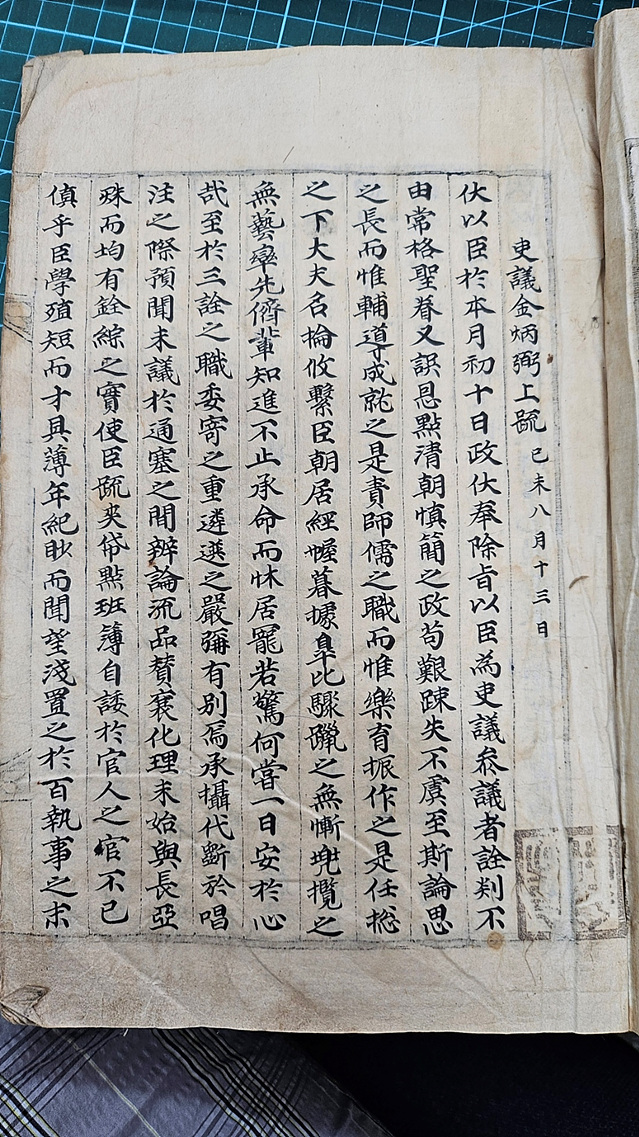 吏議金炳弼上疏 己未八月十三日
伏以臣於本月初十日政伏奉除旨以臣為吏議叅議者詮判不
由常格聖眷又誤恩點清朝慎簡之政苟艱踈失不虞至斯論思
之長而惟輔導成就之是責師儒之職而惟樂育振作之是任摠
之下大夫名掄攸繫臣朝居經幄暮據臯比驟躐之無漸兜攬之
無藝率先儕輩知進不止承命而怵居寵若驚何嘗一日安於心
哉至於三詮之職委寄之重遴選之嚴彌有别焉承攝代斲於唱
注之際預聞末議於通塞之間辨論流品賛裒化理未始與長亞
殊而均有銓綜之實使臣疏夾帒點班簿自諉於官人之官不已
傎乎臣學殖短而才具薄年紀眇而聞望淺置之於百執事之末